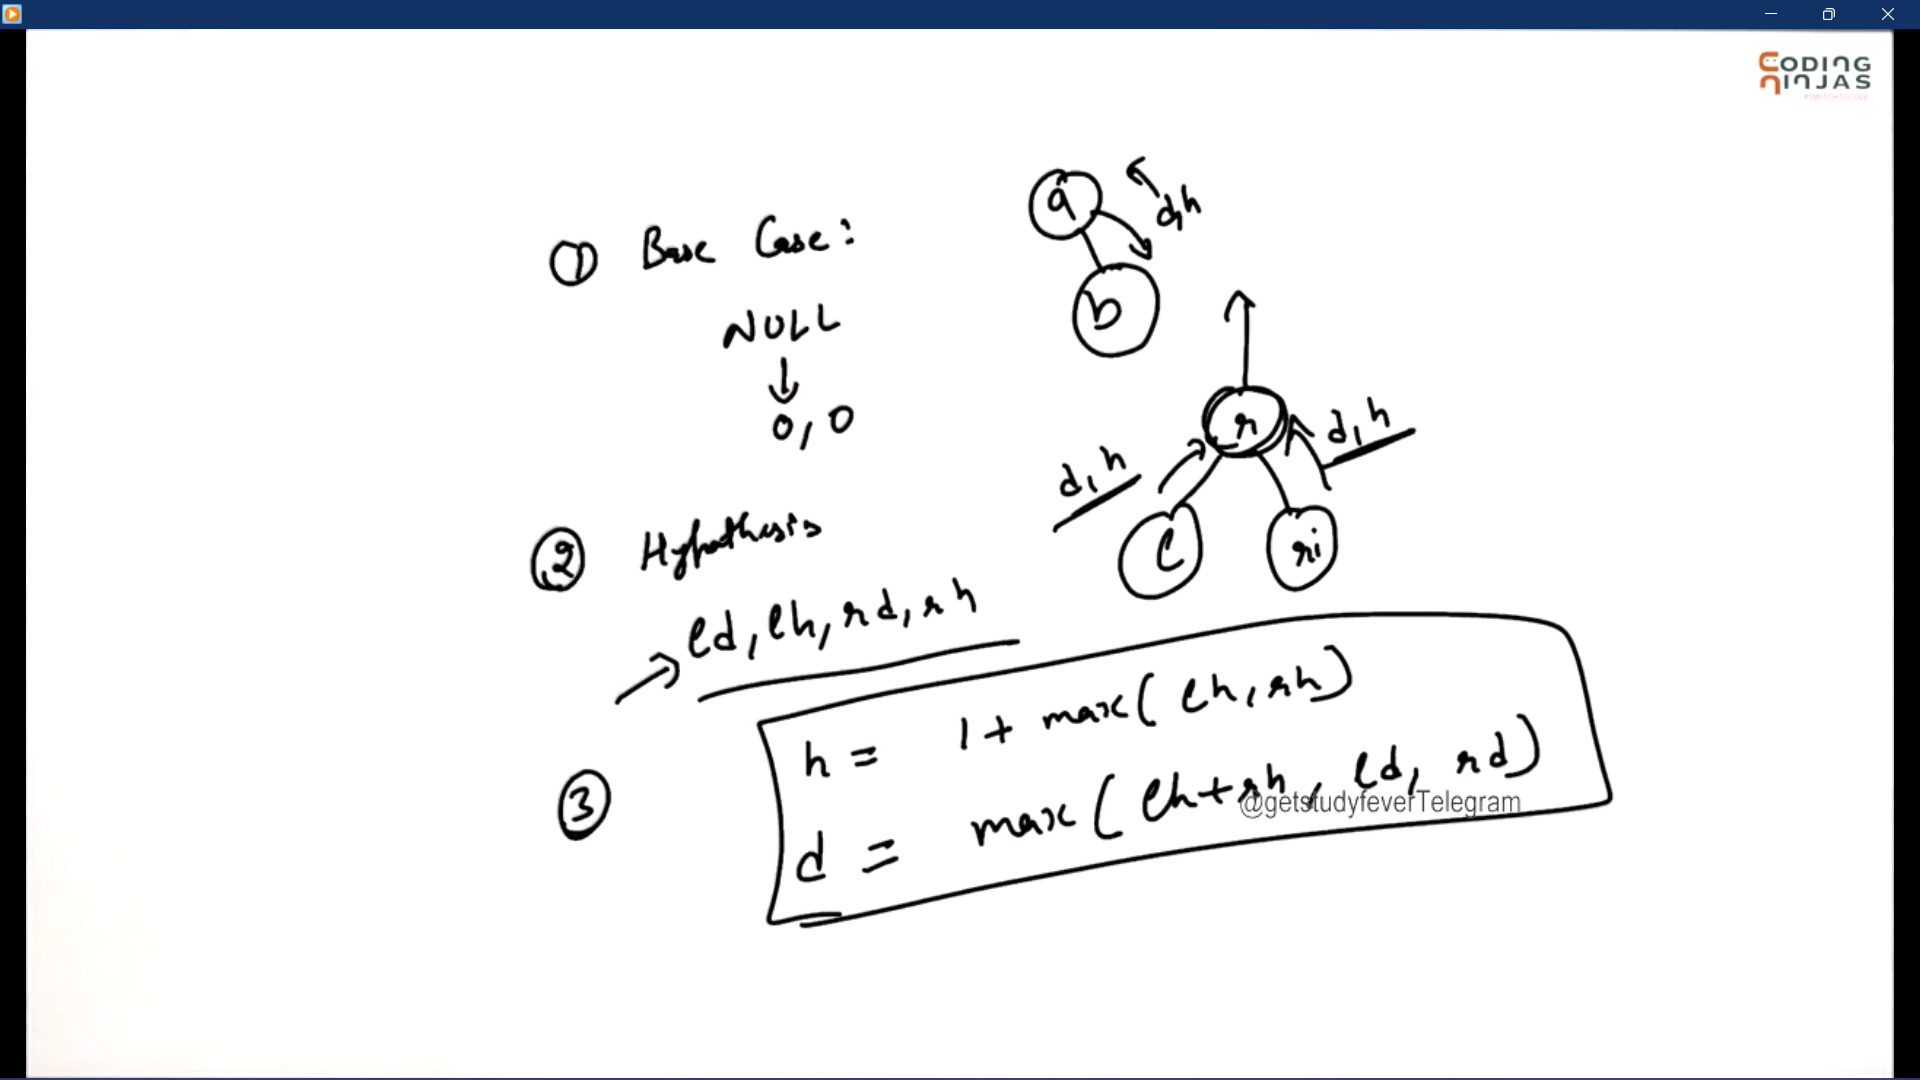 CODING
NINJAS
① Base Case:
NULL
0, 0
a
b
d,h
r
d,h
d,h
l
ri
② Hypothesis
ld, lh, rd, rh
③
h = 1 + max( lh, rh)
d = max( lh+rh, ld, rd)
@getstudyfeverTelegram